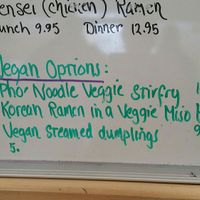 ensei (chicken) Ramen
unch 9.95 Dinner 12.95
Vegan Options:
Pho Noodle Veggie Stirfry
Korean Ramen in a Veggie Miso
Vegan steamed dumplings 9
5.